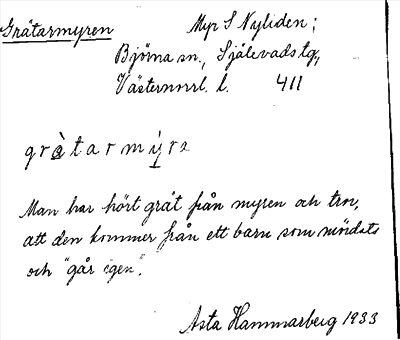 Gråtarmyren Myr S Nyliden;
Björna sn., Själevads tg.,
Västernrrl. l. 411
gràtarmy̨ra
Man har hört gråt från myren och tror,
att den kommer från ett barn som mördats
och "går igen".
Asta Hammarberg 1933